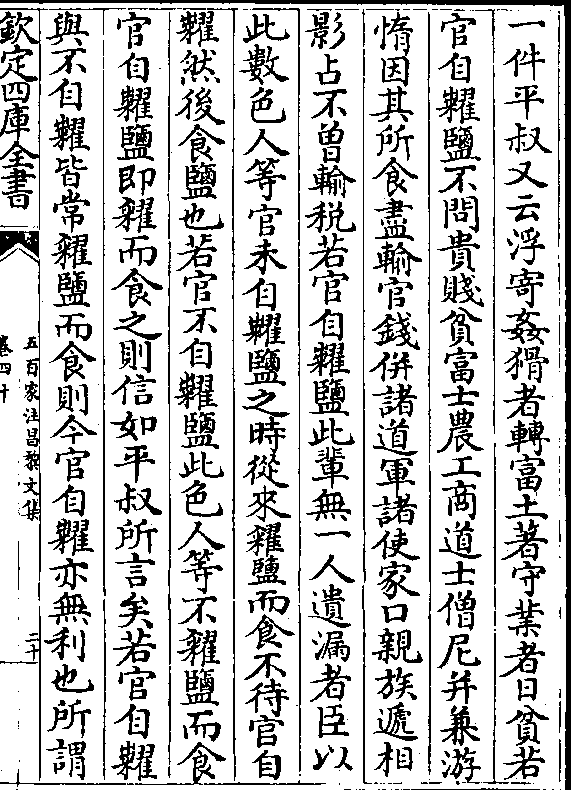 一件平叔又云浮寄姦猾者轉富土著守業者日貧若
官自糶鹽不問貴賤貧富士農工商道士僧尼并兼游
惰因其所食盡輸官錢併諸道軍諸使家口親族遞相
影占不曽輸税若官自糶鹽此輩無一人遺漏者臣以
此數色人等官未自糶鹽之時從來糴鹽而食不待官自
糶然後食鹽也若官不自糶鹽此色人等不糴鹽而食
官自糶鹽即糴而食之則信如平叔所言矣若官自糶
與不自糶皆常糴鹽而食則今官自糶亦無利也所謂
欽定四庫全書
五百家注昌黎文集
卷四十
二十